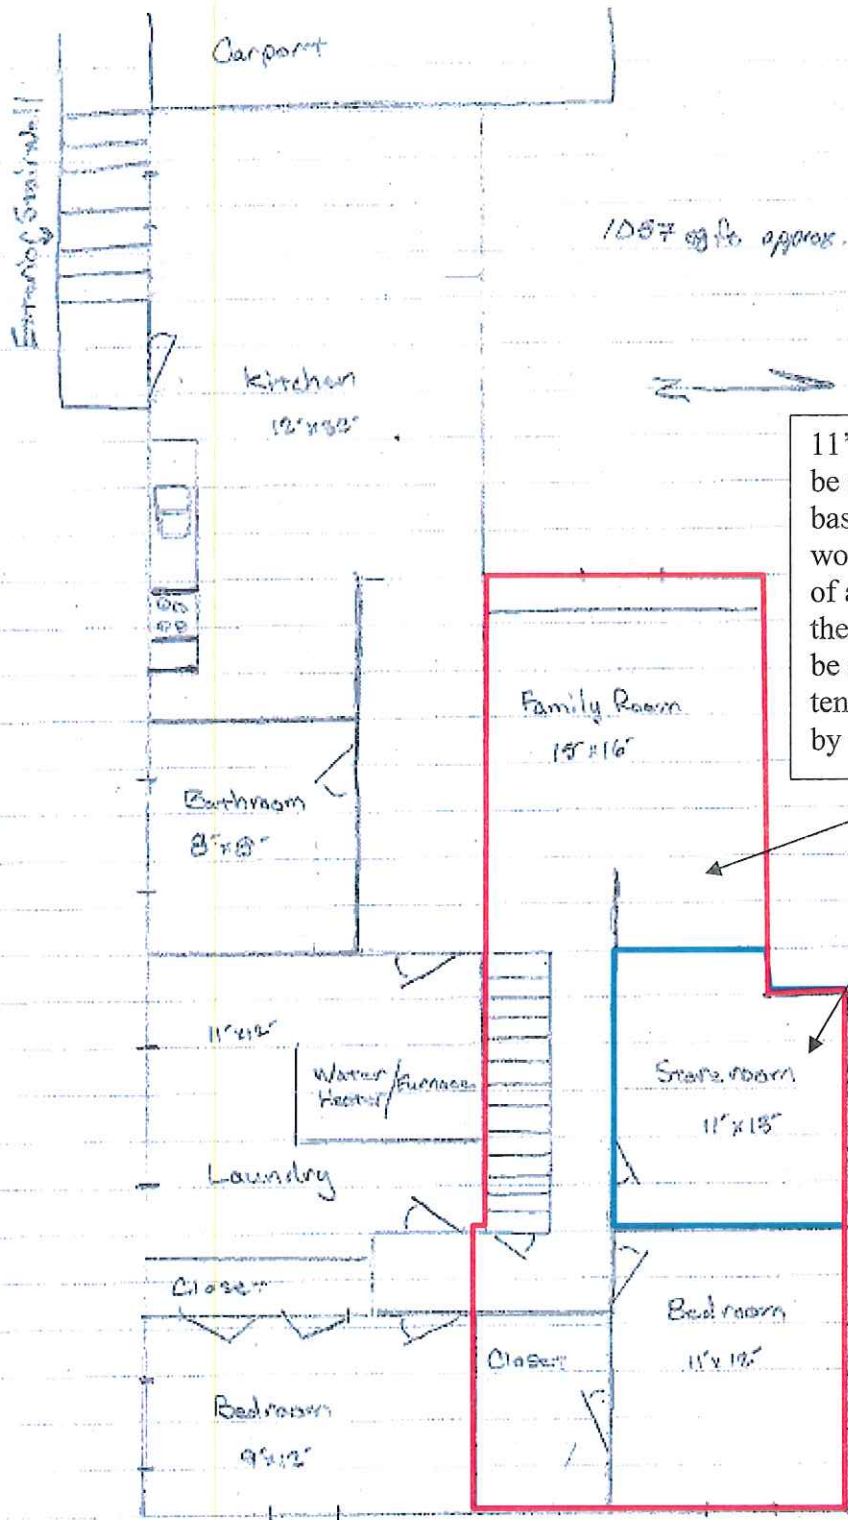 Carport
Exterior Stairwell
1057 sq ft approx.
Kitchen
N
11'
be
bas
wo
of a
the
be
ten
by
Family Room
15' x 16'
Bathroom
8' x 8'
11' x 12'
Water Heater / Furnace
Store room
11' x 13'
Laundry
Closet
Bedroom
11' x 12'
Closet
Bedroom
9' x 12'